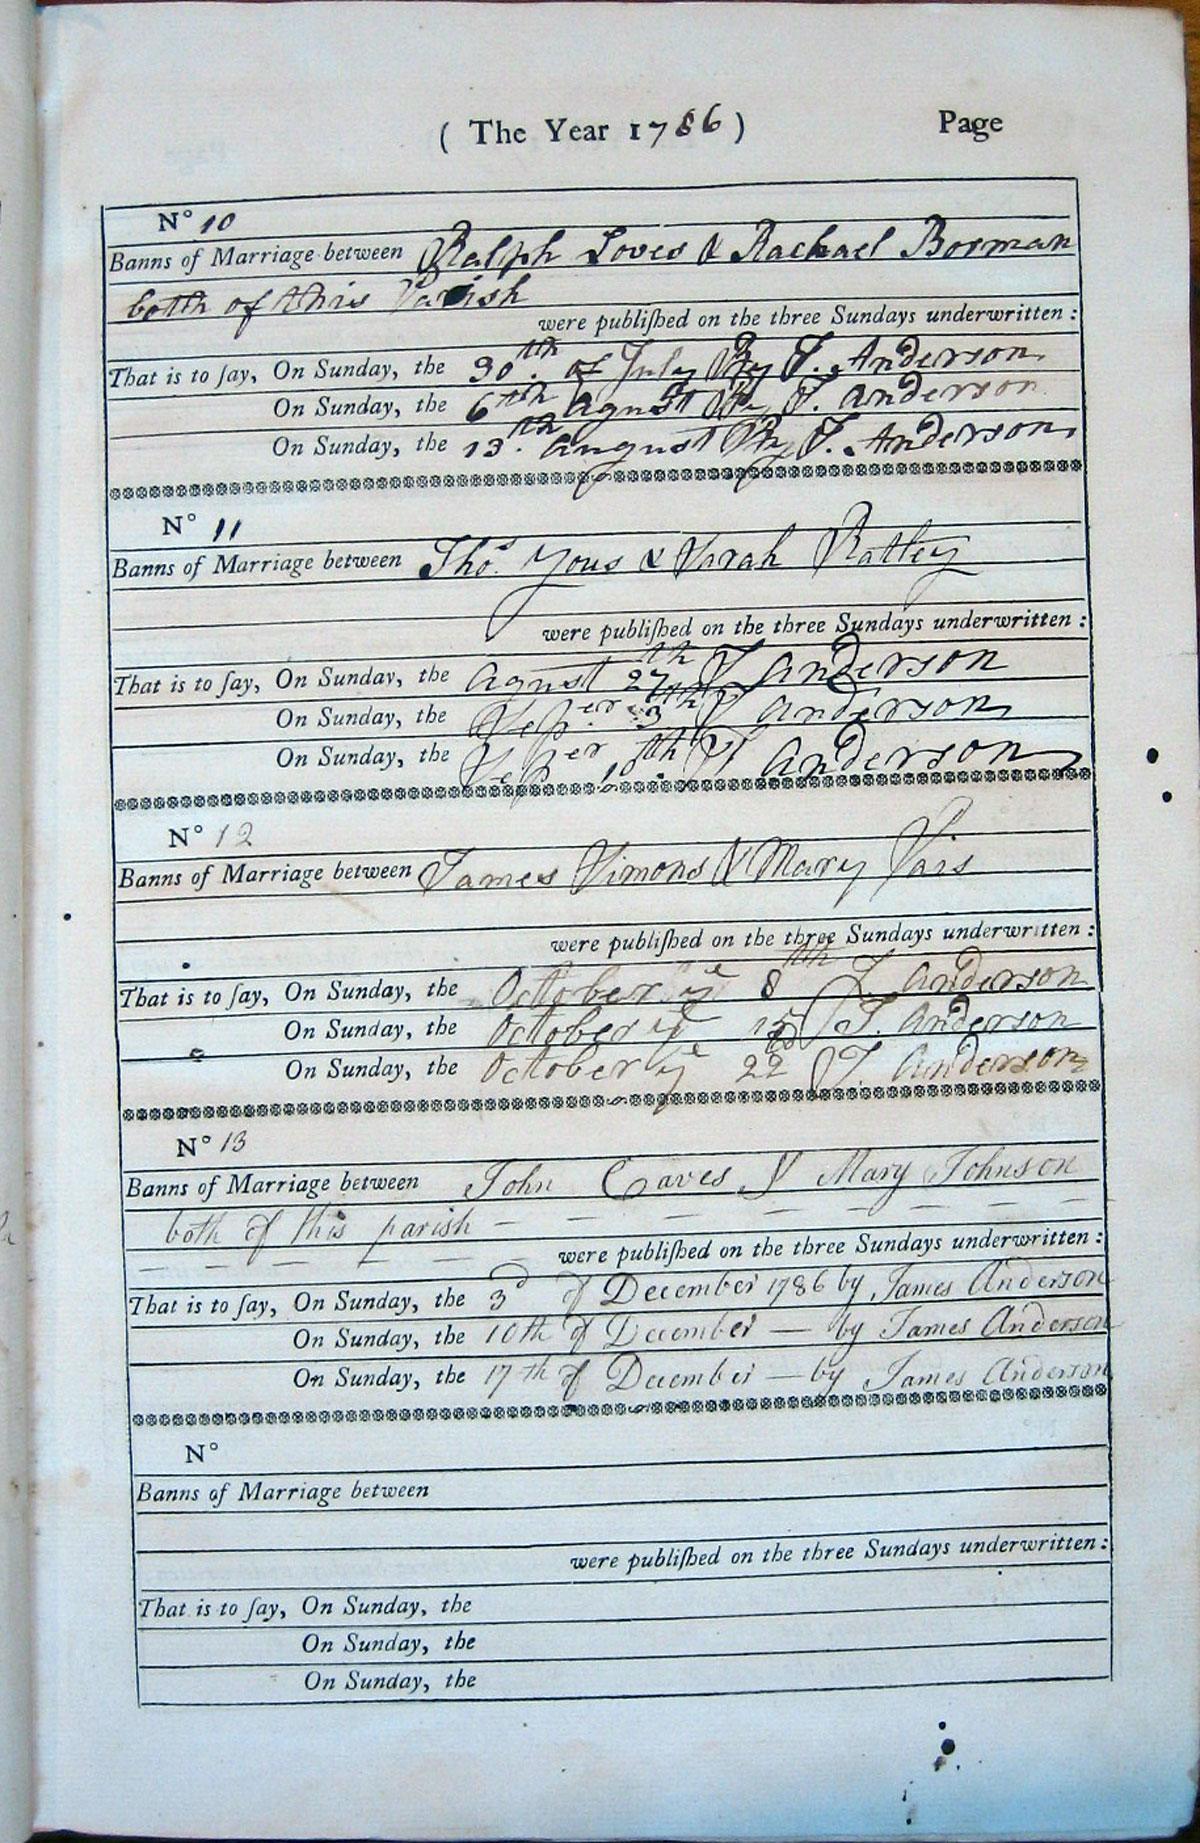 ( The Year 1786 ) Page
N° 10
Banns of Marriage between Ralph Loves & Rachael Borman
both of this Parish
were publiſhed on the three Sundays underwritten :
That is to ſay, On Sunday, the 30th. of July By J. Anderson
On Sunday, the 6th agust By J. anderson
On Sunday, the 13.th august By J. Anderson
N° 11
Banns of Marriage between Thos. Yous & Sarah Ratley
were publiſhed on the three Sundays underwritten :
That is to ſay, On Sunday, the agust 27th J anderson
On Sunday, the Seper 3th J anderson
On Sunday, the Seper 10th J anderson
N° 12
Banns of Marriage between James Simons & Mary
were publiſhed on the three Sundays underwritten :
That is to ſay, On Sunday, the October ye 8th J. anderson
On Sunday, the October ye 15 J. anderson
On Sunday, the October ye 22d J. anderson
N° 13
Banns of Marriage between John Caves & Mary Johnson
both of this parish — — — — — — —
— — — — — — were publiſhed on the three Sundays underwritten :
That is to ſay, On Sunday, the 3d of December 1786 by James Anderson
On Sunday, the 10th of December — by James Anderson
On Sunday, the 17th of December — by James Anderson
N°
Banns of Marriage between
were publiſhed on the three Sundays underwritten :
That is to ſay, On Sunday, the
On Sunday, the
On Sunday, the